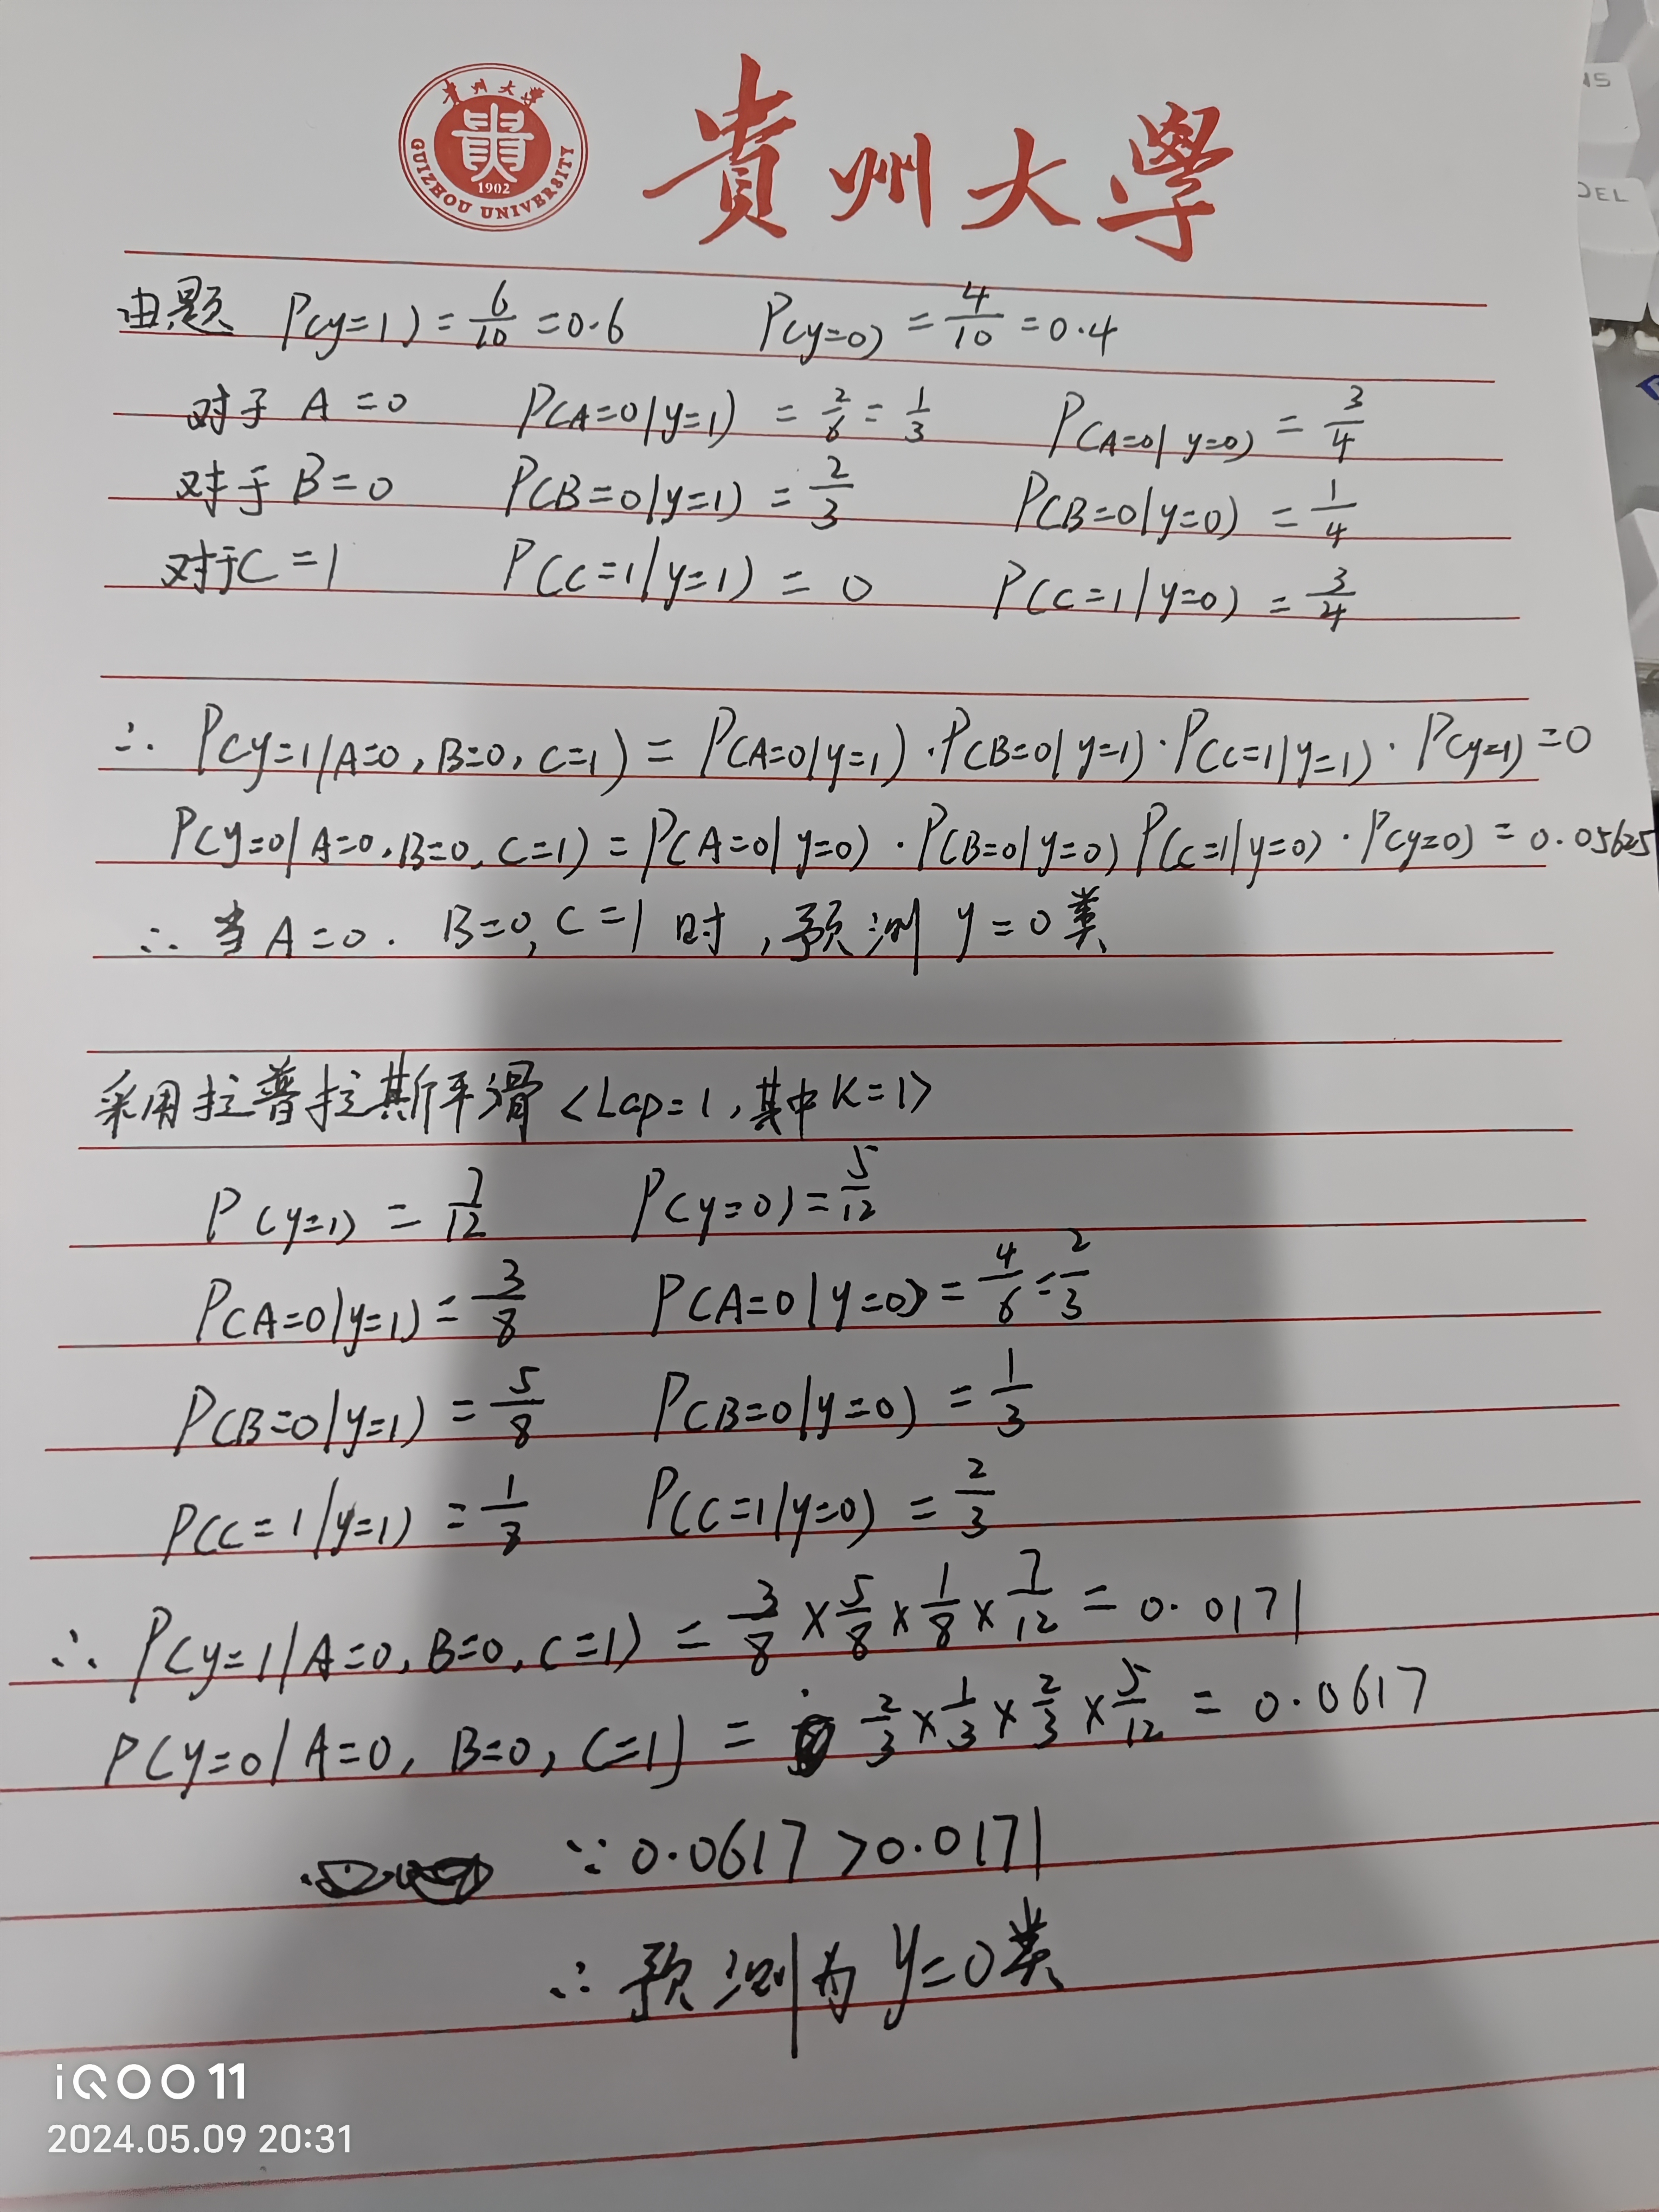 贵州大学
GUIZHOU UNIVERSITY
1902
貴州大學
NS
DEL
由题 P(y=1) = 6/10 = 0.6 P(y=0) = 4/10 = 0.4
对于 A=0 P(A=0|y=1) = 2/6 = 1/3 P(A=0|y=0) = 3/4
对于 B=0 P(B=0|y=1) = 2/3 P(B=0|y=0) = 1/4
对于C=1 P(C=1|y=1) = 0 P(C=1|y=0) = 3/4
∴ P(y=1|A=0, B=0, C=1) = P(A=0|y=1)·P(B=0|y=1)·P(C=1|y=1)·P(y=1)=0
P(y=0|A=0,B=0,C=1) = P(A=0|y=0)·P(B=0|y=0) P(C=1|y=0)·P(y=0) = 0.05625
∴ 当 A=0. B=0, C=1 时,预测 y=0类
采用拉普拉斯平滑<Lap=1,其中K=1>
P(y=1) = 7/12 P(y=0) = 5/12
P(A=0|y=1) = 3/8 P(A=0|y=0) = 4/6 = 2/3
P(B=0|y=1) = 5/8 P(B=0|y=0) = 1/3
P(C=1|y=1) = 1/8 P(C=1|y=0) = 2/3
∴ P(y=1|A=0, B=0, C=1) = 3/8 × 5/8 × 1/8 × 7/12 = 0.0171
P(y=0|A=0, B=0, C=1) = 2/3 × 1/3 × 2/3 × 5/12 = 0.0617
∵ 0.0617 > 0.0171
∴ 预测为 y=0类
iQOO 11
2024.05.09 20:31